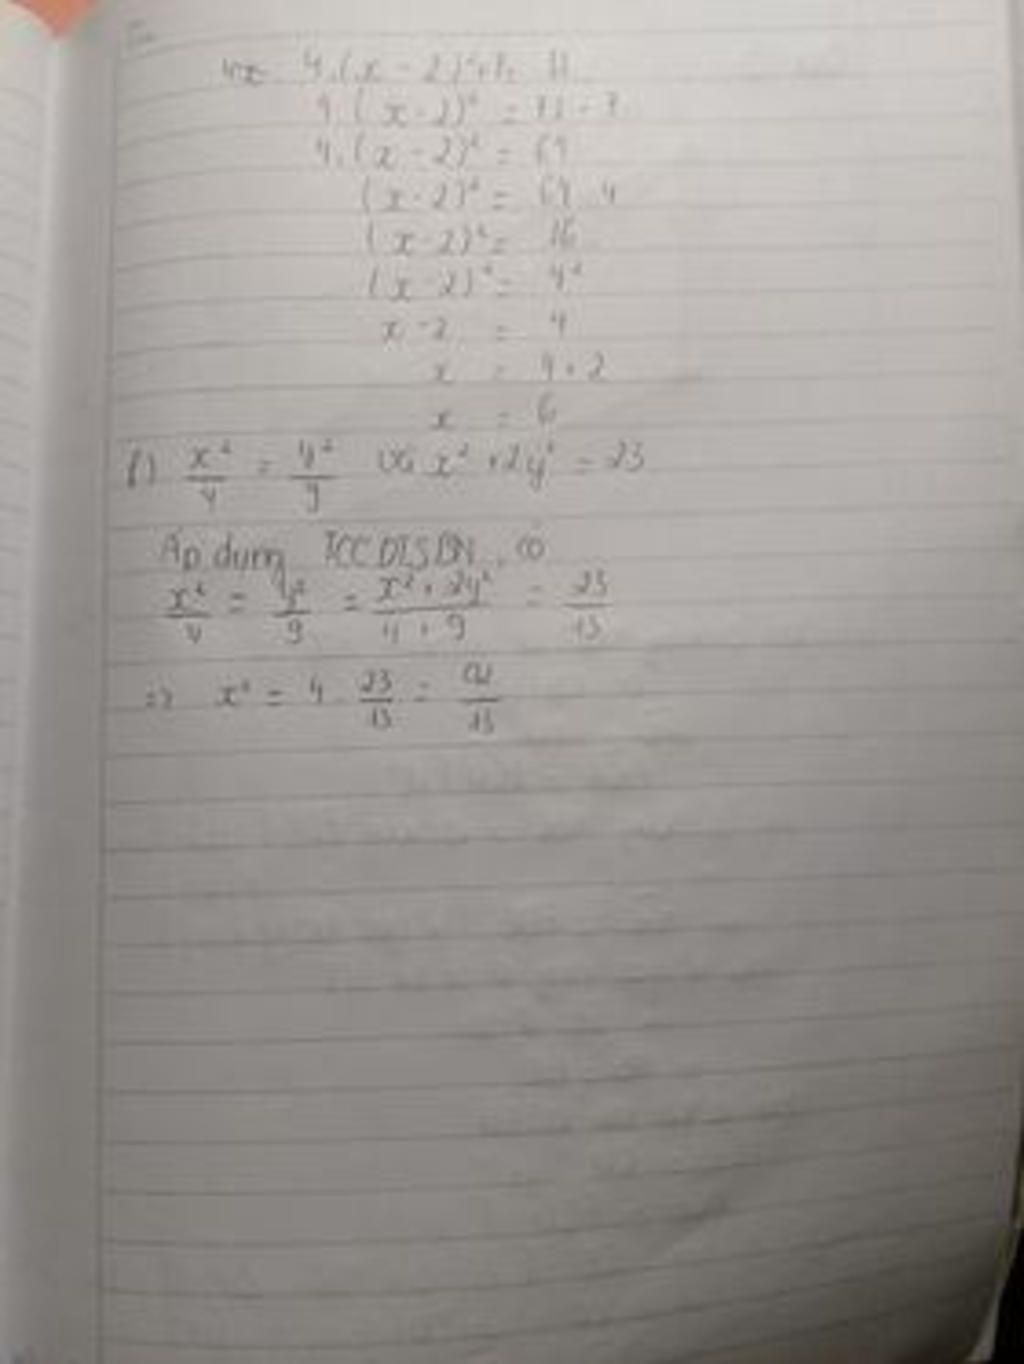 4.(x - 2)²+7= 71
4.(x-2)² = 71-7
4.(x-2)² = 64
(x-2)² = 64:4
(x-2)² = 16
(x-2)² = 4²
x-2 = 4
x = 4+2
x = 6
f) x²/4 = y²/9 và x²+2y² = 23
Áp dụng TCCDTSBN, có
x²/4 = y²/9 = x²+2y²/4+9 = 23/13
=> x² = 4. 23/13 = 92/13